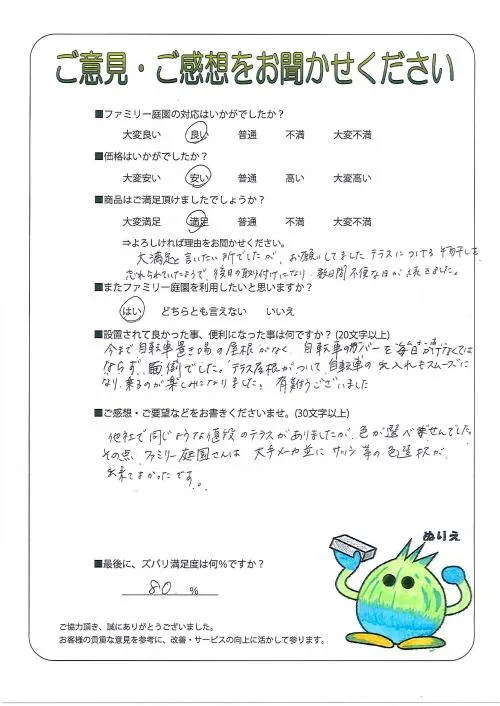 ご意見・ご感想をお聞かせください
■ファミリー庭園の対応はいかがでしたか？
大変良い　良い　普通　不満　大変不満
■価格はいかがでしたか？
大変安い　安い　普通　高い　大変高い
■商品はご満足頂けましたでしょうか？
大変満足　満足　普通　不満　大変不満
⇒よろしければ理由をお聞かせください。
大満足と言いたい所でしたが、お願いしてましたテラスにつける物干しを
忘れられていたようで、後日の取り付けになり、数日間不便な日が続きました。
■またファミリー庭園を利用したいと思いますか？
はい　どちらとも言えない　いいえ
■設置されて良かった事、便利になった事は何ですか？（20文字以上）
今まで自転車置き場の屋根がなく、自転車のカバーを毎日かけなくては
ならず、面倒でした。テラス屋根がついて、自転車の出入れもスムーズに
なり、乗るのが楽しみになりました！有難うございました
■ご感想・ご要望などをお書きくださいませ。（30文字以上）
他社で同じような値段のテラスがありましたが、色が選べませんでした。
その点、ファミリー庭園さんは大手メーカ並にサッシ等の色選択が
出来てよかったです。
ぬりえ
■最後に、ズバリ満足度は何％ですか？
80 ％
ご協力頂き、誠にありがとうございました。
お客様の貴重な意見を参考に、改善・サービスの向上に活かして参ります。